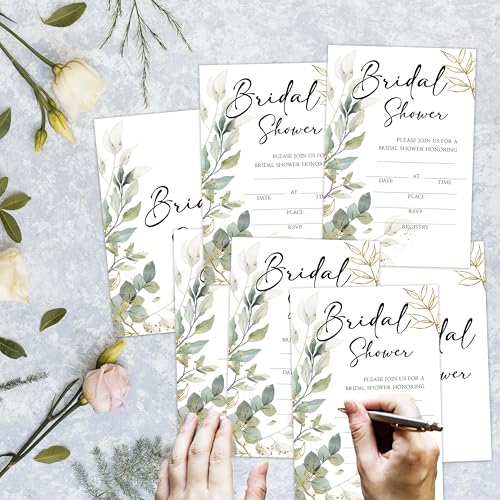 Bridal
Shower
PLEASE JOIN US FOR A
BRIDAL SHOWER HONORING
DATE AT
PLACE
RSVP
Bridal
Shower
PLEASE JOIN US FOR A
BRIDAL SHOWER HONORING
DATE AT TIME
PLACE
RSVP
REGISTRY
Bridal
Bridal
Shower
PLEASE JOIN US FOR A
BRIDAL SHOWER HONORING